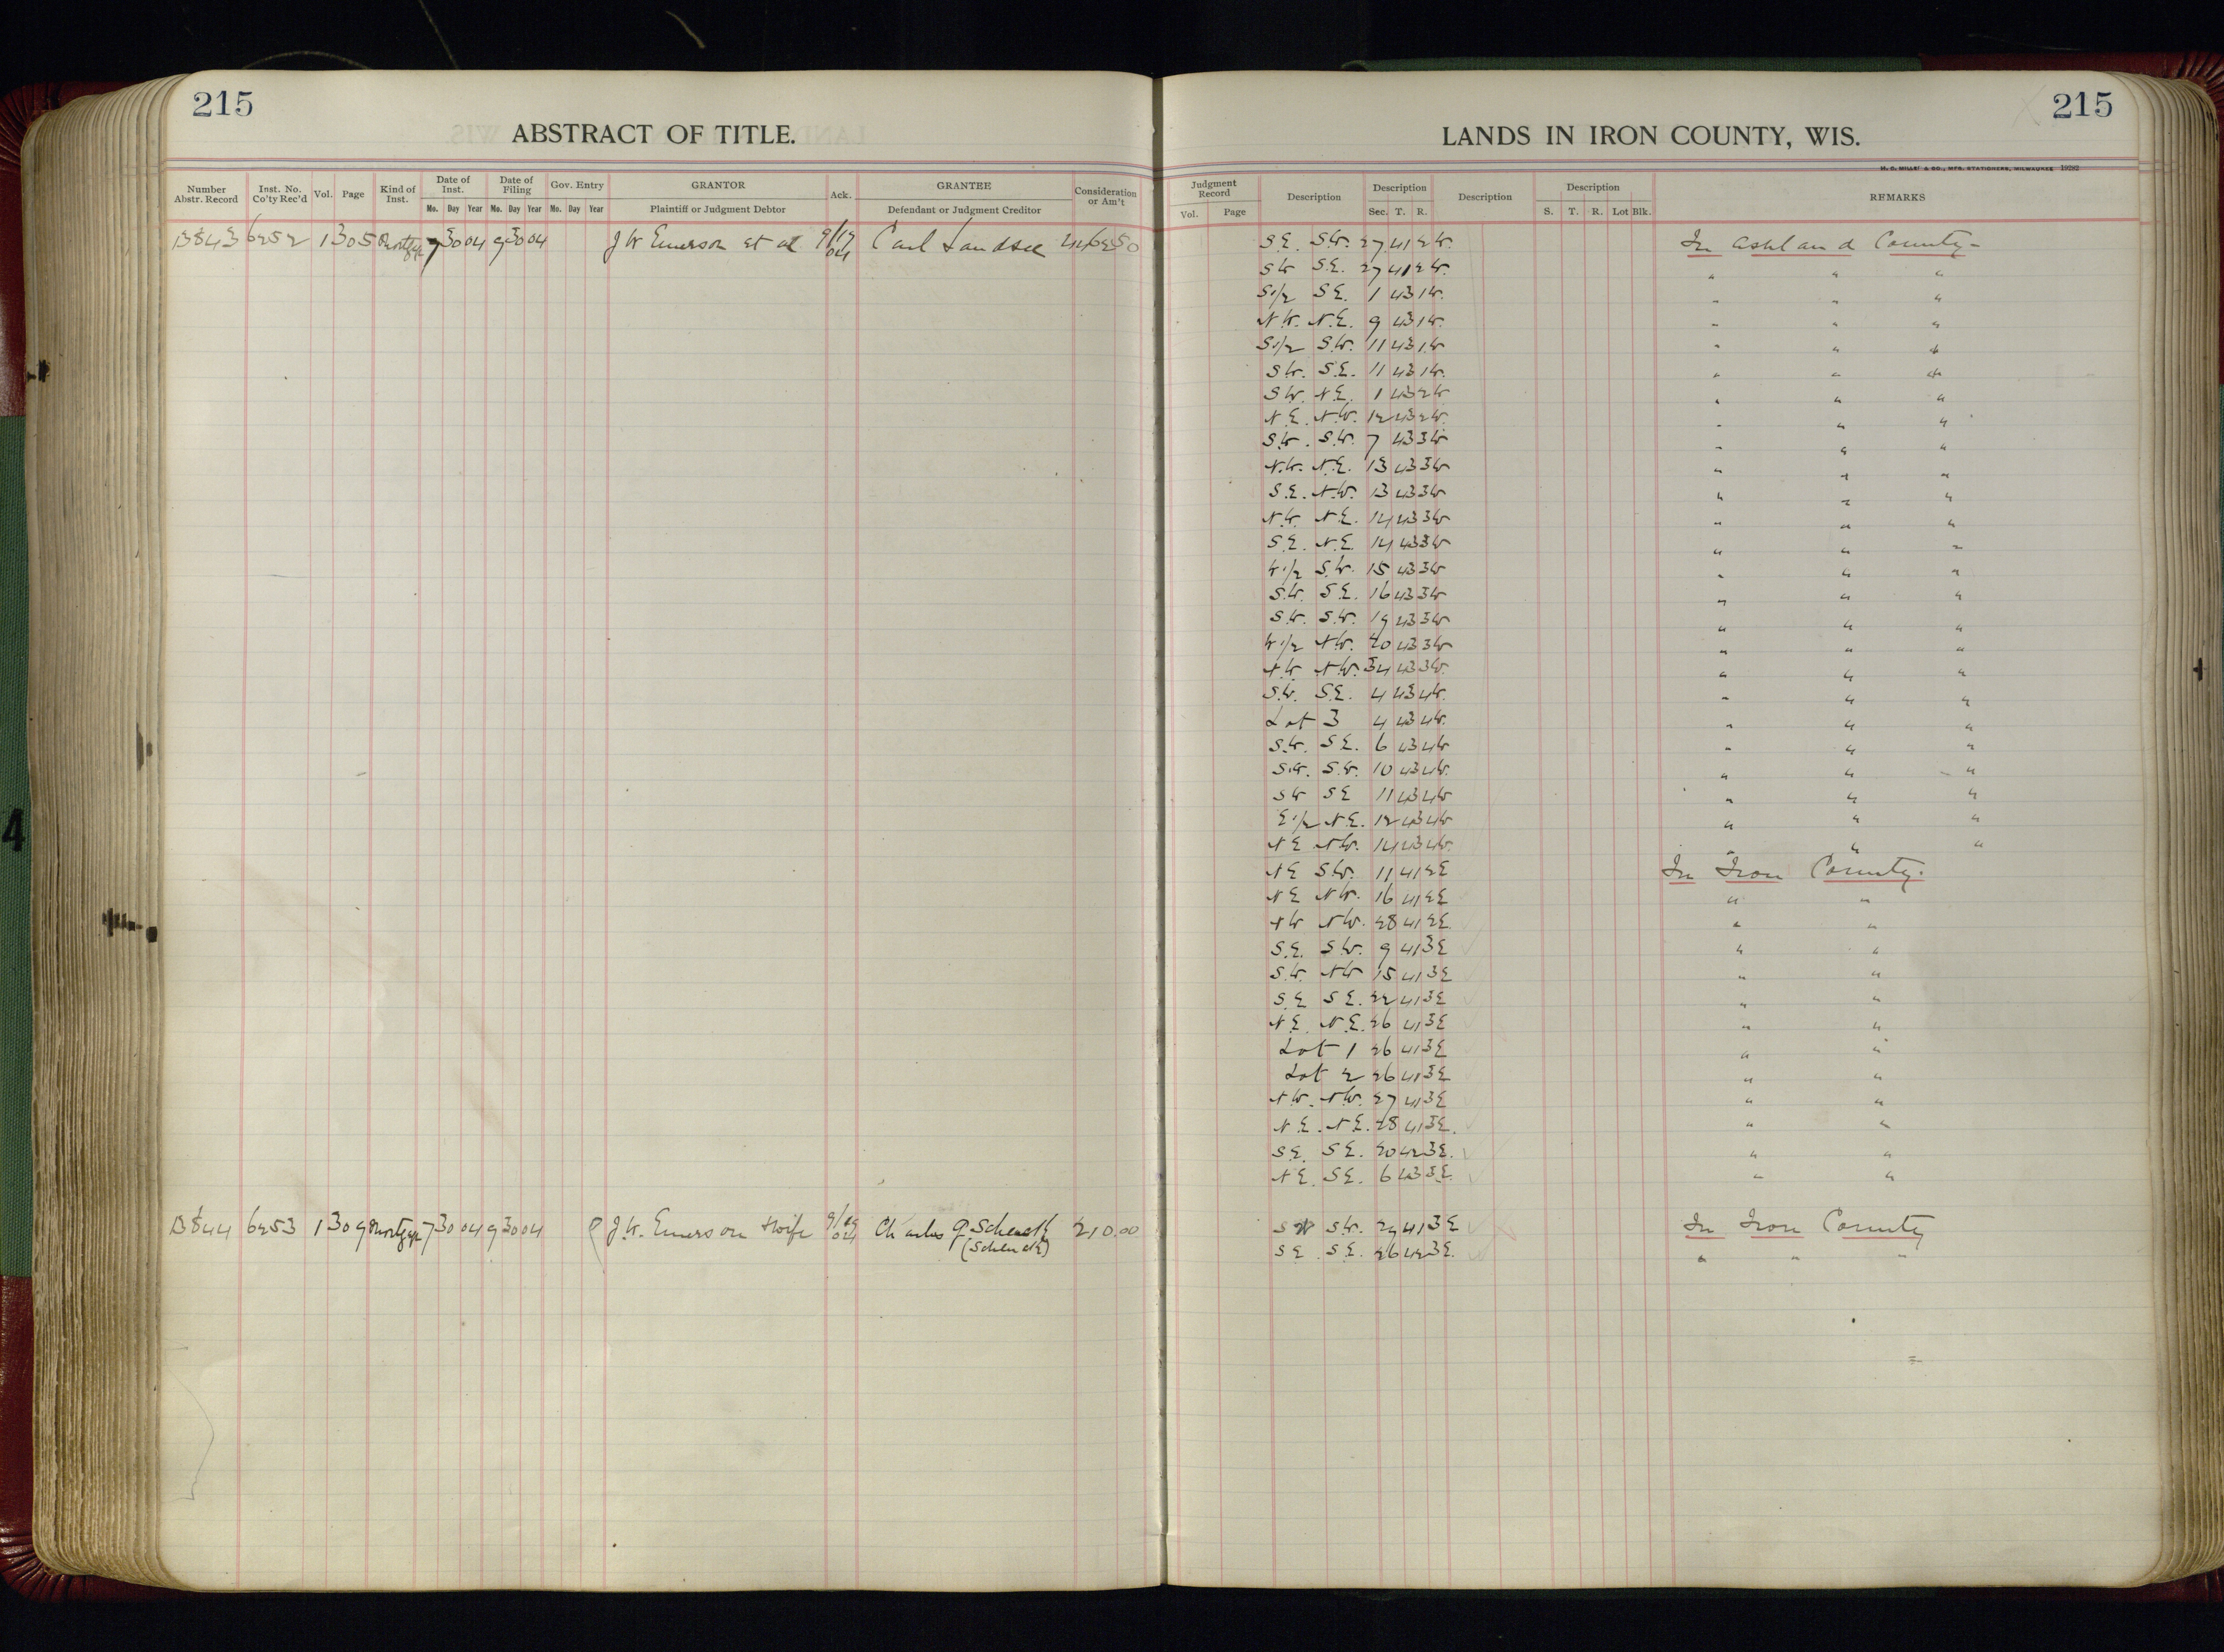 215
ABSTRACT OF TITLE.
LANDS IN IRON COUNTY, WIS.
215
H. C. MILLER CO., MFG. STATIONERS, MILWAUKEE
Number Abstr. Record | Inst. No. Co'ty Rec'd | Vol. | Page | Kind of Inst. | Date of Inst. Mo. Day Year | Date of Filing Mo. Day Year | Gov. Entry Mo. Day Year | GRANTOR Plaintiff or Judgment Debtor | Ack. | GRANTEE Defendant or Judgment Creditor | Consideration or Am't | Judgment Record Vol. Page | Description | Description Sec. T. R. | Description | Description S. T. R. Lot Blk. | REMARKS
13843 6252 1 305 Mortgage 7 30 04 9 30 04 J W Emerson et al 9/19 04 Carl Landsee 4462 50 S.E. S.W. 27 41 2 W. In Ashland County-
S W S.E. 27 41 2 W. " " "
S 1/2 S E. 1 43 1 W. " " "
N.W. N.E. 9 43 1 W. " " "
S 1/2 S.W. 11 43 1 W " " "
S W. S.E. 11 43 1 W. " " "
S W. N.E. 1 43 2 W " " "
N.E. N.W. 12 43 2 W. " " "
S.W. S.W. 7 43 3 W " " "
N.W. N.E. 13 43 3 W " " "
S.E. N.W. 13 43 3 W " " "
N.W. N.E. 14 43 3 W " " "
S.E. N.E. 14 43 3 W " " "
W 1/2 S.W. 15 43 3 W " " "
S.W. S.E. 16 43 3 W " " "
S.W. S.W. 19 43 3 W " " "
W 1/2 N.W. 20 43 3 W " " "
N.W. N.W. 34 43 3 W. " " "
S.W. S.E. 4 43 4 W. " " "
Lot 3 4 43 4 W. " " "
S.W. S E. 6 43 4 W " " "
S.W. S.W. 10 43 4 W. " " "
S W S E 11 43 4 W " " "
E 1/2 N.E. 12 43 4 W " " "
N E N W. 14 43 4 W. " " "
N E S.W. 11 41 2 E In Iron County.
N E N W. 16 41 2 E " "
N W N W. 28 41 2 E. " "
S.E. S W. 9 41 3 E " "
S.W N W 15 41 3 E " "
S.E S E. 22 41 3 E " "
N E. N.E. 26 41 3 E " "
Lot 1 26 41 3 E " "
Lot 2 26 41 3 E " "
N.W. N.W. 27 41 3 E " "
N.E. N.E. 28 41 3 E. " "
S.E. S E. 20 42 3 E. " "
N E. S E. 6 43 3 E. " "
13844 6253 1 309 Mortgage 7 30 04 9 30 04 J.W. Emerson & wife 9/29 04 Charles Schenck (Schenck) 210.00 S W S.W. 29 41 3 E In Iron County
S E. S E. 26 42 3 E. " " "